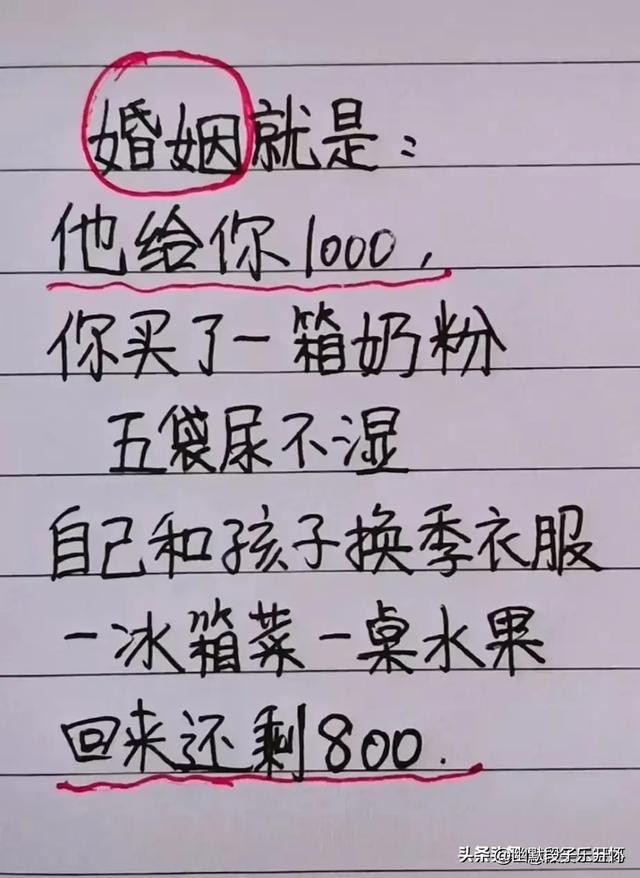 婚姻就是：
他给你1000，
你买了一箱奶粉
五袋尿不湿
自己和孩子换季衣服
一冰箱菜一桌水果
回来还剩800.
头条 @幽默段子乐开怀